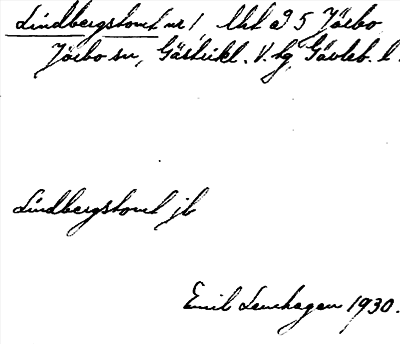 Lindbergstomt nr 1, lht a 5 Järbo
Järbo sn, Gästrikl. V. hg, Gävleb. l.
Lindbergstomt jb
Emil Lenhagen 1930.